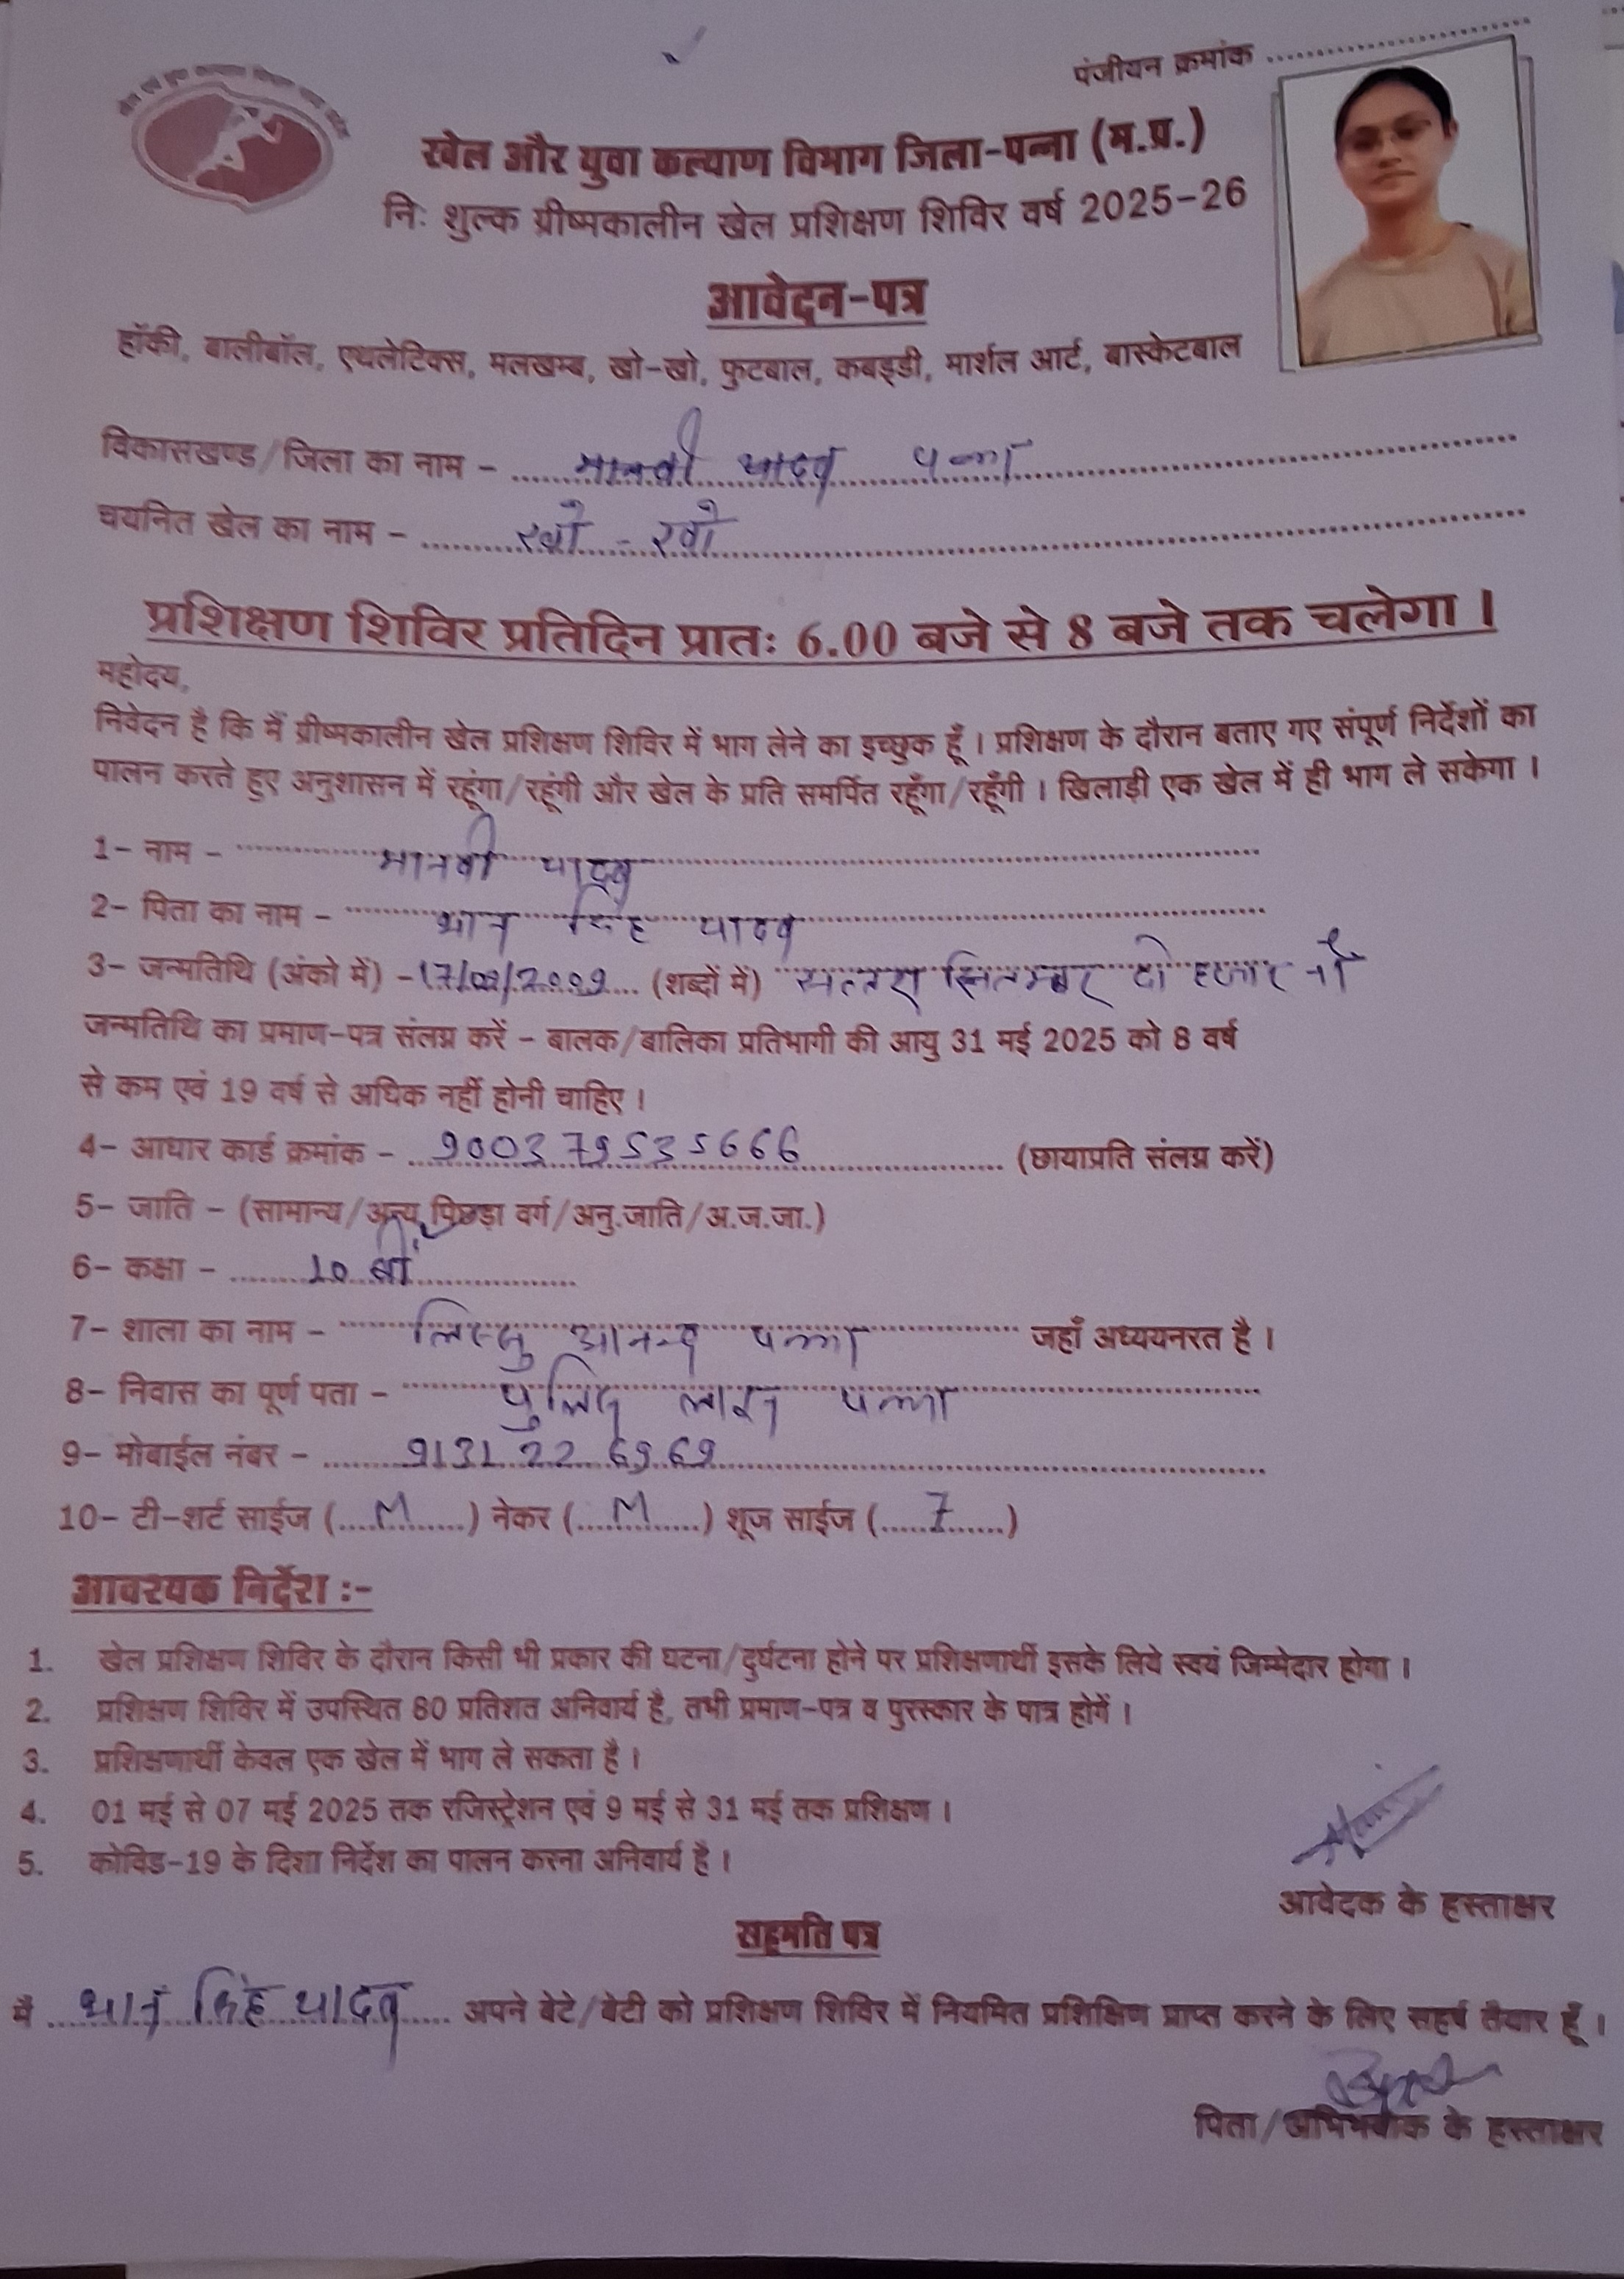 पंजीयन क्रमांक
खेल और युवा कल्याण विभाग जिला-पन्ना (म.प्र.)
नि: शुल्क ग्रीष्मकालीन खेल प्रशिक्षण शिविर वर्ष 2025-26
आवेदन-पत्र
हॉकी, बालीबॉल, एथलेटिक्स, मलखम्ब, खो-खो, फुटबाल, कबड्डी, मार्शल आर्ट, बास्केटबाल
विकासखण्ड/जिला का नाम - मानवी यादव पन्ना
चयनित खेल का नाम - खो - खो
प्रशिक्षण शिविर प्रतिदिन प्रातः 6.00 बजे से 8 बजे तक चलेगा ।
महोदय,
निवेदन है कि मैं ग्रीष्मकालीन खेल प्रशिक्षण शिविर में भाग लेने का इच्छुक हूँ । प्रशिक्षण के दौरान बताए गए संपूर्ण निर्देशों का
पालन करते हुए अनुशासन में रहूंगा/रहूंगी और खेल के प्रति समर्पित रहूँगा/रहूँगी । खिलाड़ी एक खेल में ही भाग ले सकेगा ।
1- नाम - मानवी यादव
2- पिता का नाम - भान सिंह यादव
3- जन्मतिथि (अंको में) - 17/09/2009 (शब्दों में) सत्तरा सितम्बर दो हजार नौ
जन्मतिथि का प्रमाण-पत्र संलग्न करें - बालक/बालिका प्रतिभागी की आयु 31 मई 2025 को 8 वर्ष
से कम एवं 19 वर्ष से अधिक नहीं होनी चाहिए ।
4- आधार कार्ड क्रमांक - 900379535666 (छायाप्रति संलग्न करें)
5- जाति - (सामान्य/अन्य पिछड़ा वर्ग/अनु.जाति/अ.ज.जा.)
6- कक्षा - 10 वीं
7- शाला का नाम - आनन्द पन्ना जहाँ अध्ययनरत है ।
8- निवास का पूर्ण पता - पुलिस लाइन पन्ना
9- मोबाईल नंबर - 9131 22 6969
10- टी-शर्ट साईज (M) नेकर (M) शूज साईज (7)
आवश्यक निर्देश :-
1. खेल प्रशिक्षण शिविर के दौरान किसी भी प्रकार की घटना/दुर्घटना होने पर प्रशिक्षणार्थी इसके लिये स्वयं जिम्मेदार होगा ।
2. प्रशिक्षण शिविर में उपस्थित 80 प्रतिशत अनिवार्य है, तभी प्रमाण-पत्र व पुरस्कार के पात्र होगें ।
3. प्रशिक्षणार्थी केवल एक खेल में भाग ले सकता है ।
4. 01 मई से 07 मई 2025 तक रजिस्ट्रेशन एवं 9 मई से 31 मई तक प्रशिक्षण ।
5. कोविड-19 के दिशा निर्देश का पालन करना अनिवार्य है ।
आवेदक के हस्ताक्षर
सहमति पत्र
मै भान सिंह यादव अपने बेटे/बेटी को प्रशिक्षण शिविर में नियमित प्रशिक्षिण प्राप्त करने के लिए सहर्ष तैयार हूँ ।
पिता/अभिभवाक के हस्ताक्षर